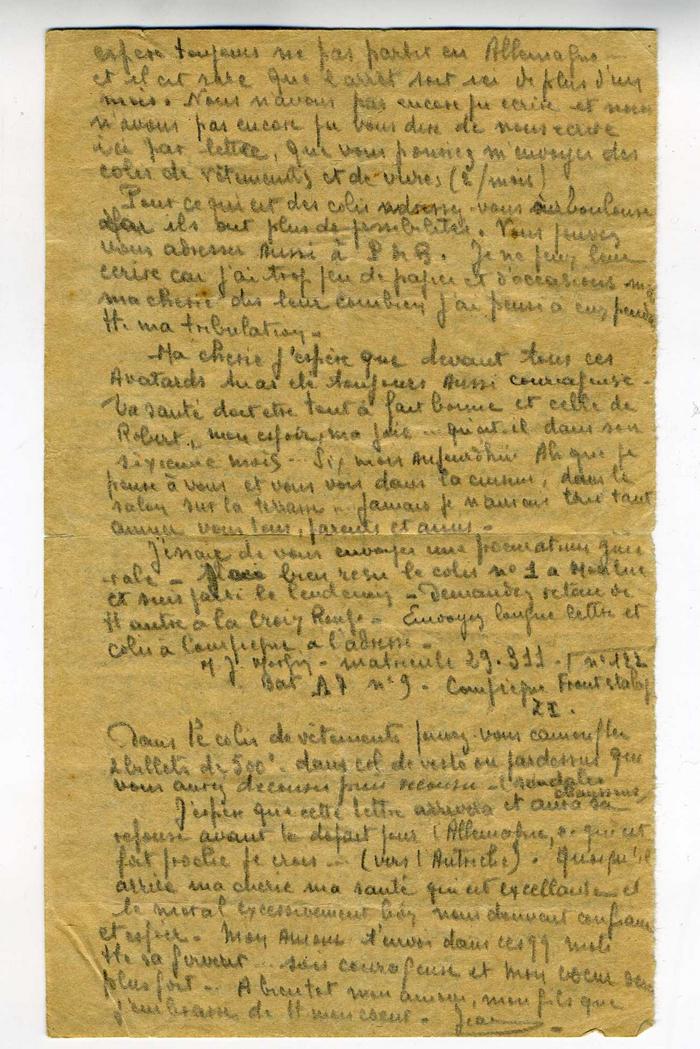 espère toujours ne pas partir en Allemagne —
et il est rare que l'arrêt soit ici de plus d'un
mois. Nous n'avons pas encore pu ecrire et nous
n'avons pas encore pu vous dire de nous ecrire
ici par lettre, que vous pouvez m'envoyer des
colis de vêtements et de vivres (2/mois)
Pour ce qui est des colis adressez vous
car ils ont plus de possibilités. Vous pouvez
vous adresser aussi à P de G. Je ne peux leur
ecrire car j'ai trop peu de papier et d'occasions
ma cherie dis leur combien j'ai pensé à eux
tte ma tribulation —
Ma cherie j'espère que devant tous ces
Avatards tu as été toujours aussi courageuse —
Ta santé doit etre tout à fait bonne et celle de
Robert, mon espoir, ma joie — qu'il dans son
sixieme mois — Six mois Aujourdhui Ah que je
pense à vous et vous vois dans la cuisine, dans le
salon sur la terrasse — Jamais je n'aurais tant
vous tous, parents et amis —
J'essaie de vous envoyer une procuration géné
rale — bien reçu le colis n° 1 a Moulins
et suis parti le lendemain — Demandez retour de
tt autre à la Croix Rouge — Envoyez longue lettre et
colis a Compiegne a l'adresse —
M J — matricule 29.311 — n° 122
Bat A 7 n° 9 — Compiègne Front stalag
Dans le colis de vêtements pouvez-vous camoufler
2 billets de 500 — dans col de veste ou pardessus que
vous aurez decousu puis recousu — sandales
chaussons
J'espère que cette lettre arrivera et aura sa
reponse avant le départ pour l'Allemagne, ce qui est
fort proche je crois — (vers l'Autriche). Quoiqu'il
arrive ma cherie ma santé qui est excellente et
le moral excessivement bon nous donnent confiance
et espoir — Mon Amour t'envoi dans ces 99 mots
tte sa ferveur — sois courageuse et mon coeur
plus fort — A bientot mon amour, mon fils que
j'embrasse de tt mon coeur — Jean